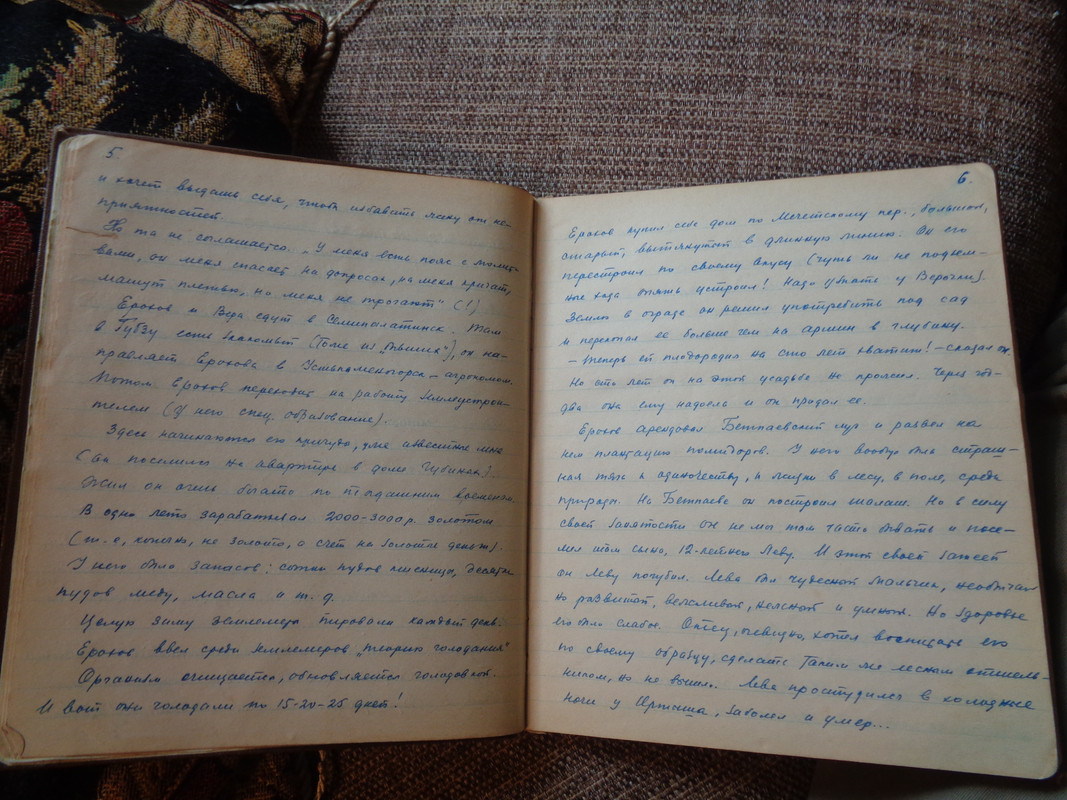 5.
и хочет выдать себя, чтоб избавить жену от не-
приятностей.
Но та не соглашается. „У меня есть пояс с молит-
вами, он меня спасает на допросах, на меня кричат,
машут плетью, но меня не трогают" (!)
Ерохов и Вера едут в Семипалатинск. Там
в Губзу есть знакомый (тоже из „бывших"), он на-
правляет Ерохова в Устькаменогорск - агрономом.
Потом Ерохов переходит на работу землеустрои-
телем (у него спец. образование).
Здесь начинаются его причуды, уже известные мне
(Он поселился на квартире в доме Губиных).
Жил он очень богато по тогдашним временам.
В одно лето зарабатывал 2000-3000 р. золотом
(т. е, конечно, не золото, а счет на золотые деньги).
У него было запасов: сотни пудов пшеницы, десятки
пудов меду, масла и т. д.
Целую зиму землемеры пировали каждый день.
Ерохов ввел среди землемеров „теорию голодания"
Организм очищается, обновляется голодовкой.
И вот они голодали по 15-20-25 дней!
6.
Ерохов купил себе дом по Мечетскому пер., большой,
старый, вытянутый в длинную линию. Он его
перестроил по своему вкусу (чуть ли не подзем-
ные хода опять устроил! Надо узнать у
Землю в ограде он решил употребить под сад
и перекопал ее больше чем на аршин в глубину.
- Теперь ей плодородия на сто лет хватит! - сказал он.
Но сто лет он на этой усадьбе не прожил. Через год-
два она ему надоела и он продал ее.
Ерохов арендовал Бетпаевский луг и развел на
нем плантацию помидоров. У него вообще была страш-
ная тяга к одиночеству, к жизни в лесу, в поле, среди
природы. На Бетпаеве он построил шалаш. Но в силу
своей занятости он не мог там часто бывать и посе-
лил там сына, 12-летнего Леву. И этой своей затеей
он Леву погубил. Лева был чудесный мальчик, необычай
но развитой, вежливый, нежный и умный. Но здоровье
его было слабое. Отец, очевидно, хотел воспитать его
по своему образцу, сделать таким же лесным отшель-
ником, но не вышло. Лева простудился в холодные
ночи у Иртыша, заболел и умер...